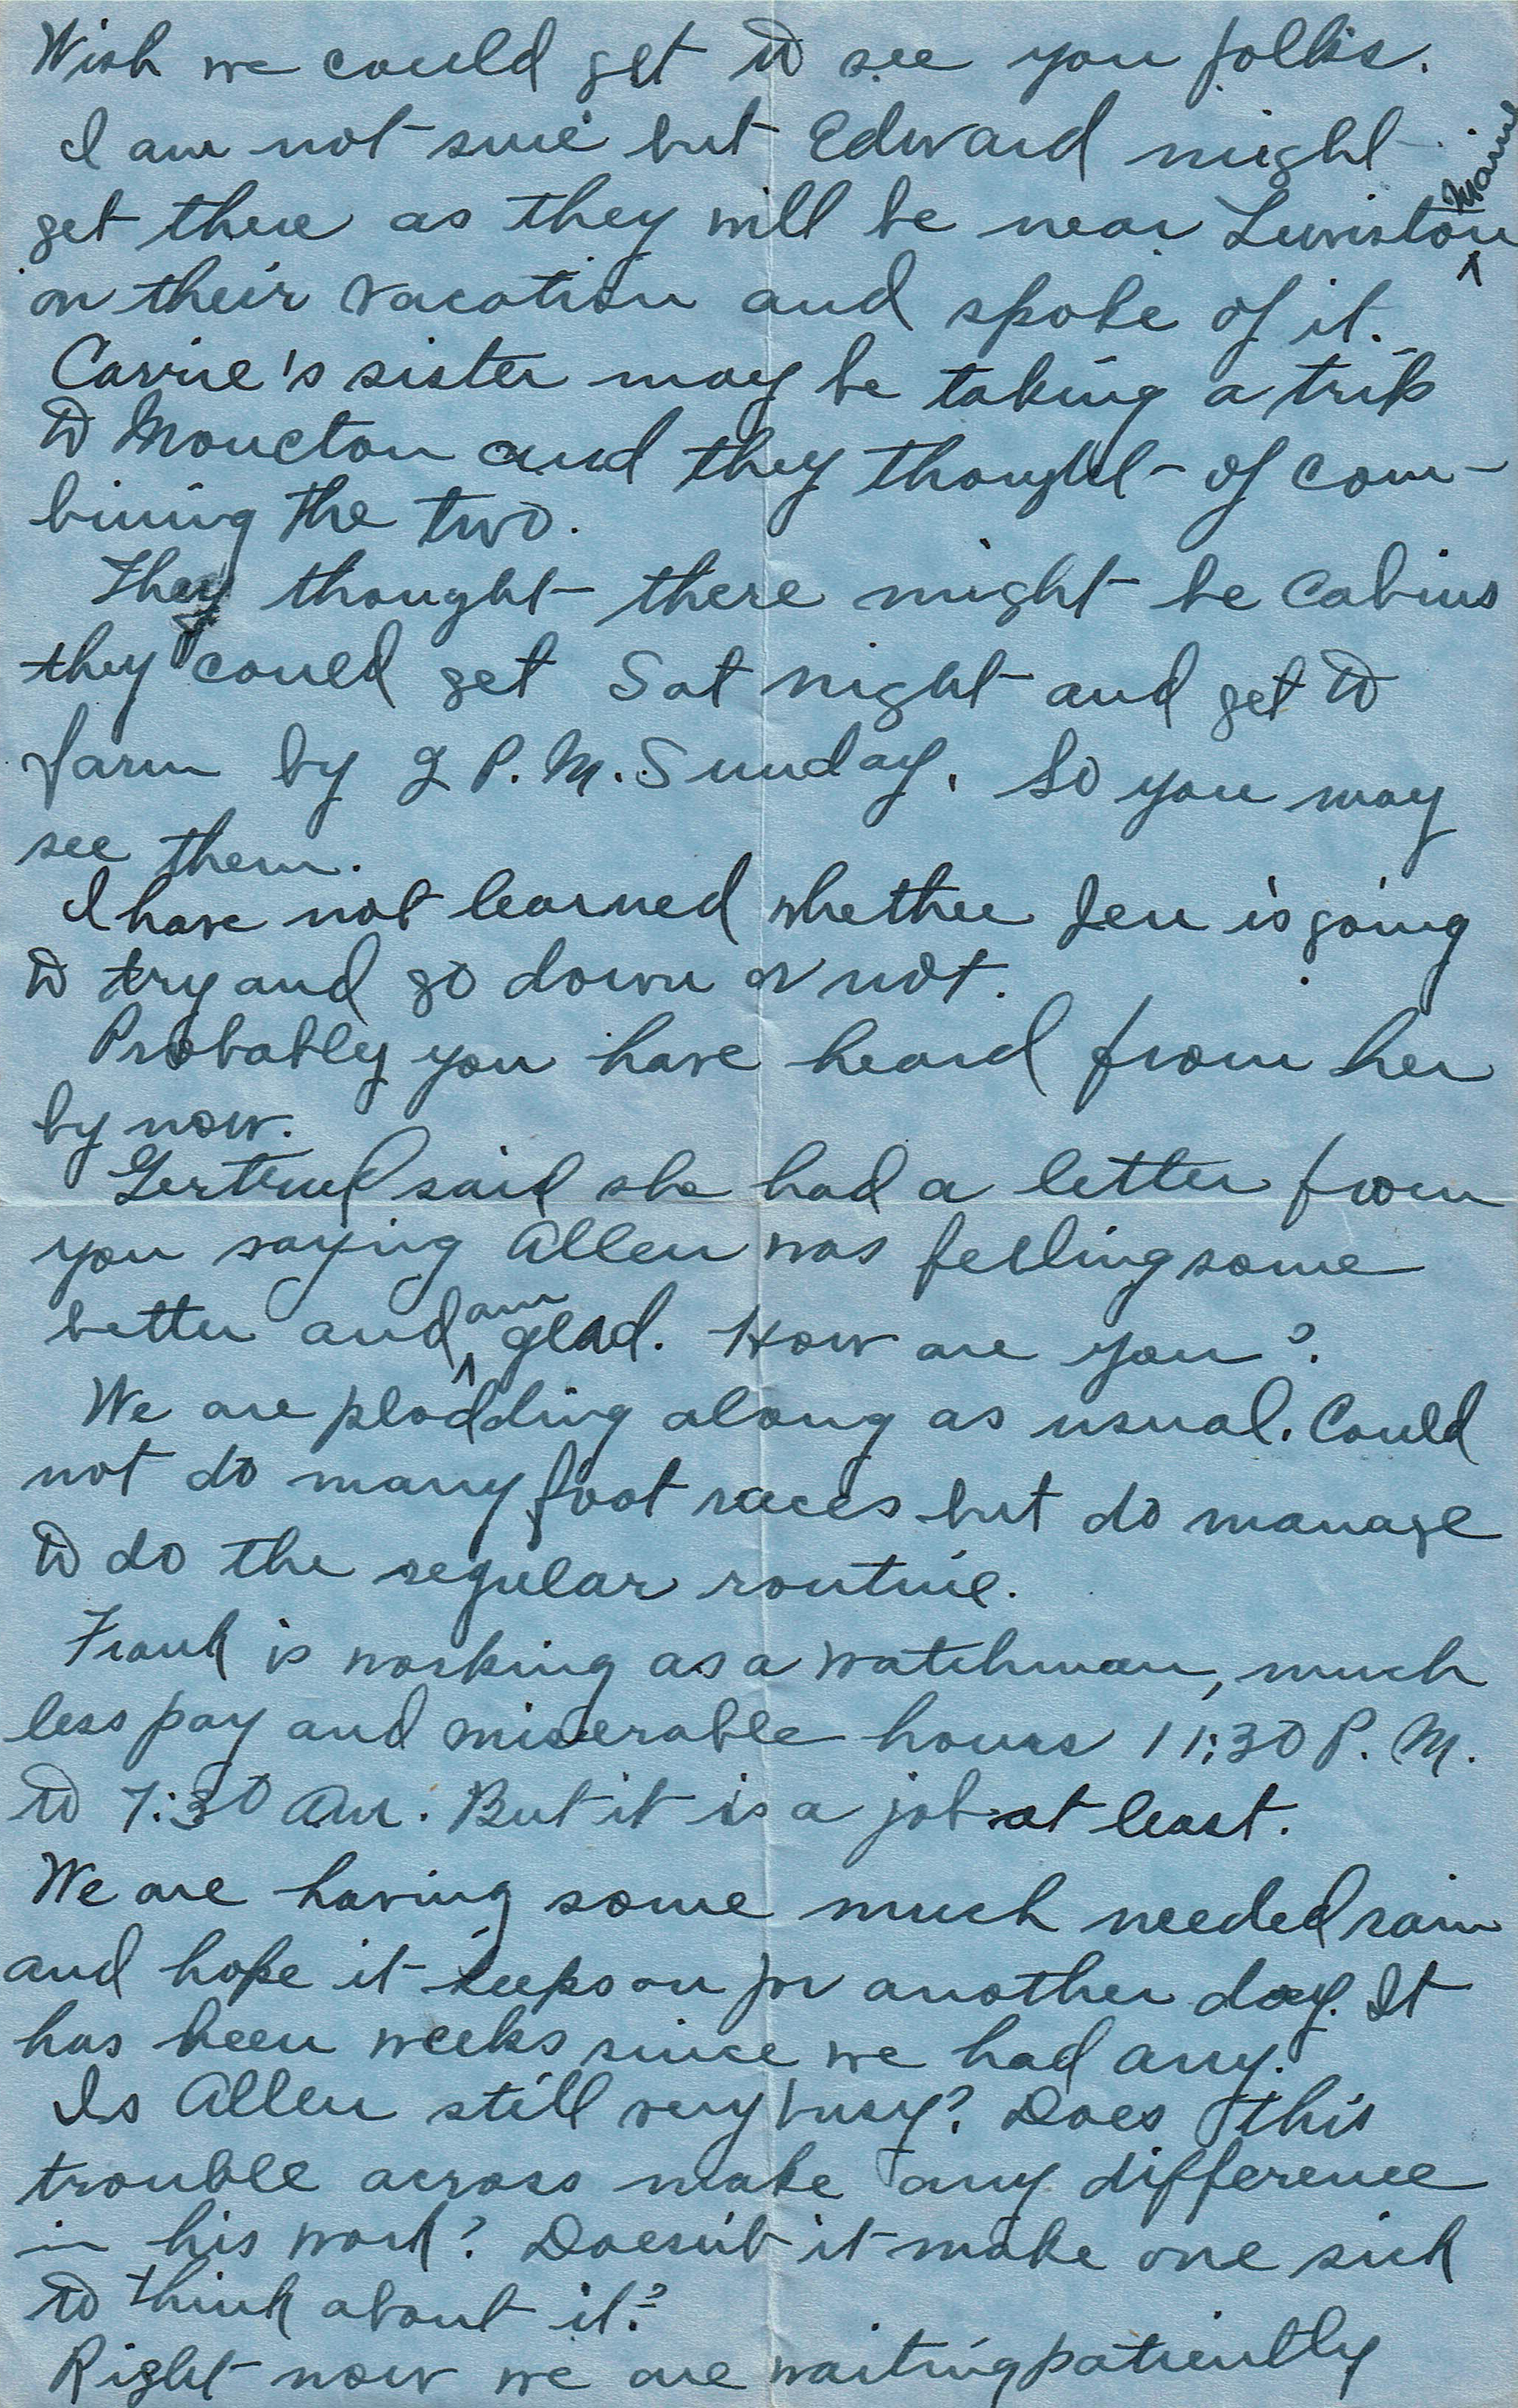 Wish we could get to see you folks.
I am not sure but Edward might
get there as they will be near Lewiston Maine
on their vacation and spoke of it.
Carrie's sister may be taking a trip
to Moncton and they thought of com-
bining the two.
They thought there might be cabins
they could get Sat night and get to
farm by 2 P.M. Sunday. So you may
see them.
I have not learned whether Jen is going
to try and go down or not.
Probably you have heard from her
by now.
Gertrude said she had a letter from
you saying Allen was feeling some
better and am glad. How are you?
We are plodding along as usual. Could
not do many foot races but do manage
to do the regular routine.
Frank is working as a watchman, much
less pay and miserable hours 11:30 P.M.
to 7:30 Am. But it is a job at least.
We are having some much needed rain
and hope it keeps on for another day. It
has been weeks since we had any.
Is Allen still very busy? Does this
trouble across make any difference
in his work? Doesn't it make one sick
to think about it?
Right now we are waiting patiently